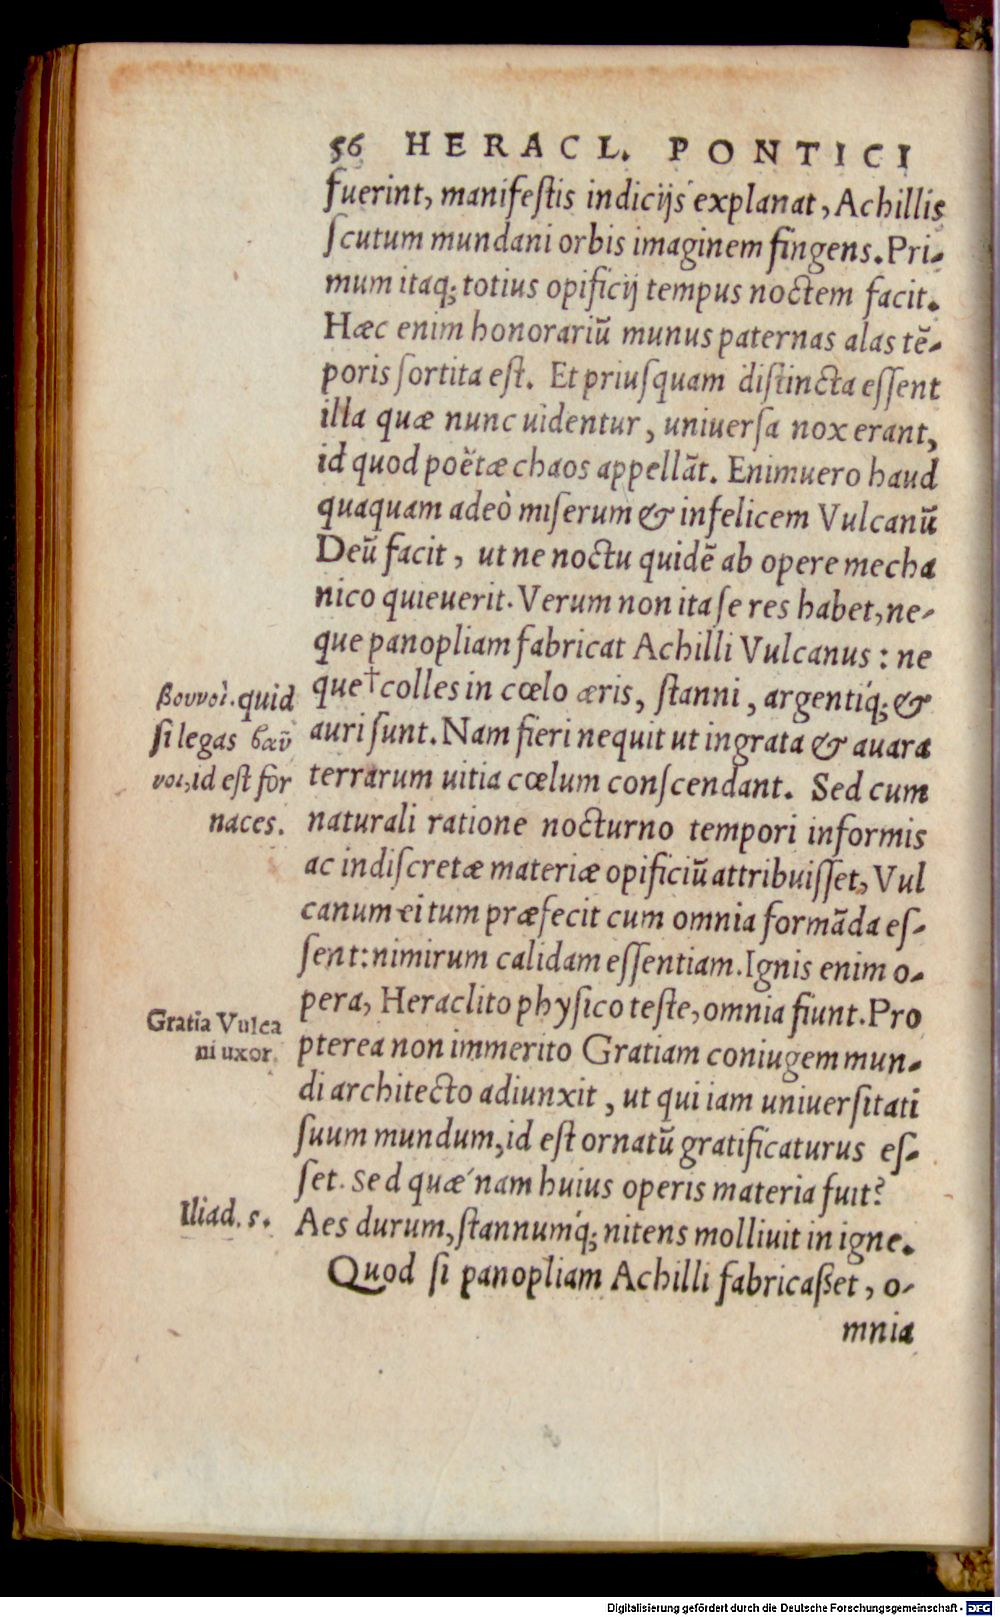 56 HERACL. PONTICI
fuerint, manifestis indicijs explanat, Achillis
scutum mundani orbis imaginem fingens. Pri-
mum itaq; totius opificij tempus noctem facit.
Hæc enim honorariū munus paternas alas tē-
poris sortita est. Et priusquam distincta essent
illa quæ nunc uidentur, uniuersa nox erant,
id quod poëtæ chaos appellāt. Enimuero haud
quaquam adeò miserum & infelicem Vulcanū
Deū facit, ut ne noctu quidē ab opere mecha
nico quieuerit. Verum non ita se res habet, ne-
que panopliam fabricat Achilli Vulcanus: ne
que † colles in cœlo æris, stanni, argentiq́; &
auri sunt. Nam fieri nequit ut ingrata & auara
terrarum uitia cœlum conscendant. Sed cum
naturali ratione nocturno tempori informis
ac indiscretæ materiæ opificiū attribuisset, Vul
canum ei tum præfecit cum omnia formāda es-
sent: nimirum calidam essentiam. Ignis enim o-
pera, Heraclito physico teste, omnia fiunt. Pro
pterea non immerito Gratiam coniugem mun-
di architecto adiunxit, ut qui iam uniuersitati
suum mundum, id est ornatū gratificaturus es-
set. Sed quæ nam huius operis materia fuit?
Aes durum, stannumq́; nitens molliuit in igne.
Quod si panopliam Achilli fabricasset, o-
mnia
βουνοὶ. quid
si legas βαῦ
νοι, id est for
naces.
Gratia Vulca
ni uxor.
Iliad. s.
Digitalisierung gefördert durch die Deutsche Forschungsgemeinschaft - DFG